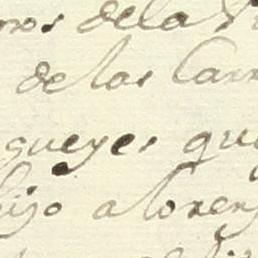 nos dela
de las Carr
gueyes que
hijo aloren